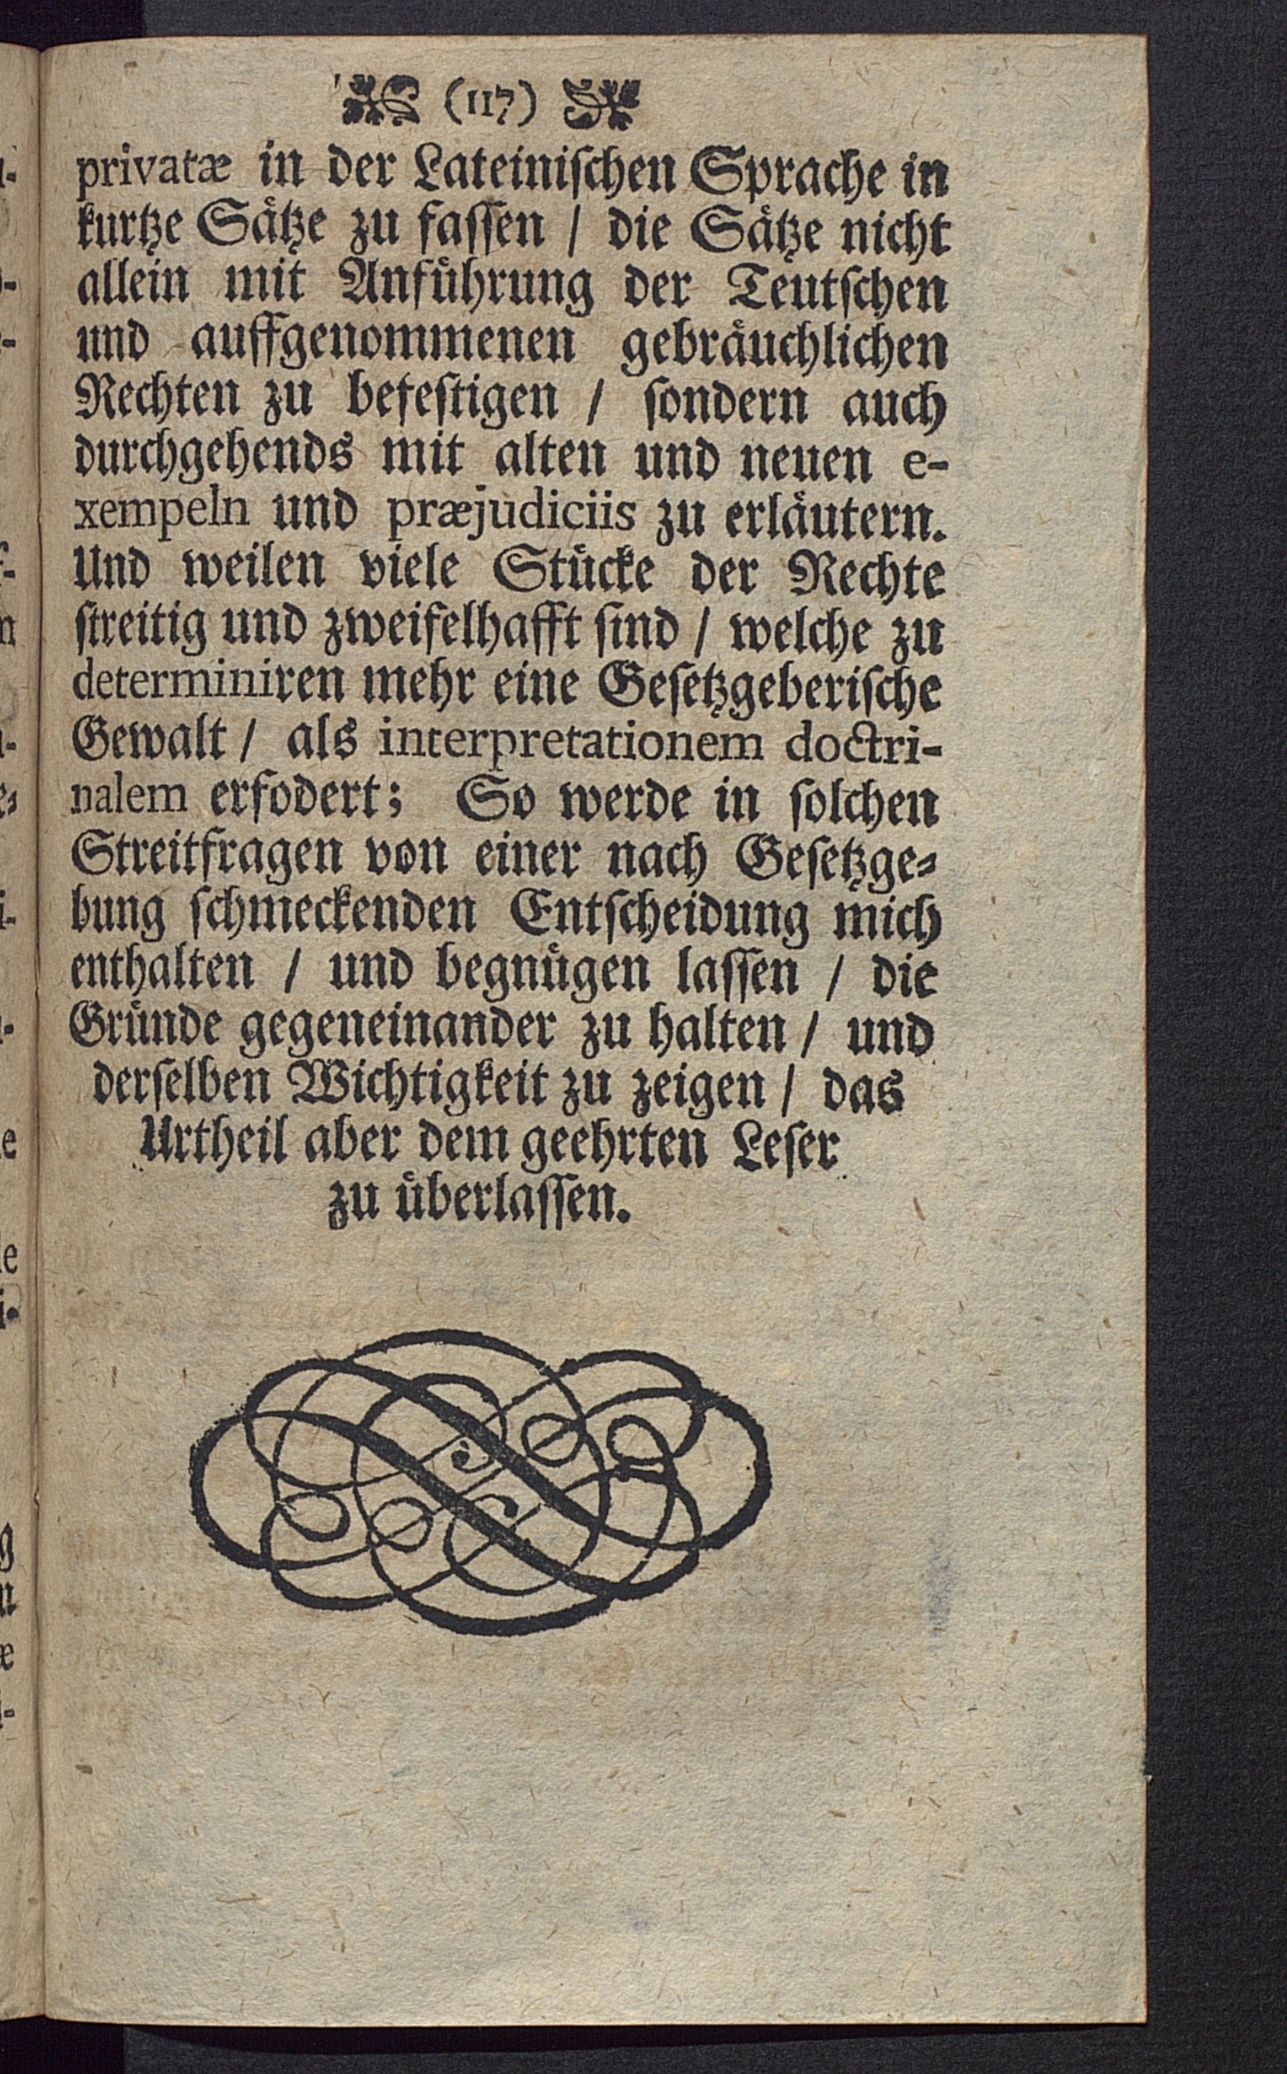 (117)
privatæ in der Lateinischen Sprache in
kurtze Sätze zu fassen / die Sätze nicht
allein mit Anführung der Teutschen
und auffgenommenen gebräuchlichen
Rechten zu befestigen / sondern auch
durchgehends mit alten und neuen e-
xempeln und præjudiciis zu erläutern.
Und weilen viele Stücke der Rechte
streitig und zweifelhafft sind / welche zu
determiniren mehr eine Gesetzgeberische
Gewalt / als interpretationem doctri-
nalem erfodert; So werde in solchen
Streitfragen von einer nach Gesetzge-
bung schmeckenden Entscheidung mich
enthalten / und begnügen lassen / die
Gründe gegeneinander zu halten / und
derselben Wichtigkeit zu zeigen / das
Urtheil aber dem geehrten Leser
zu überlassen.